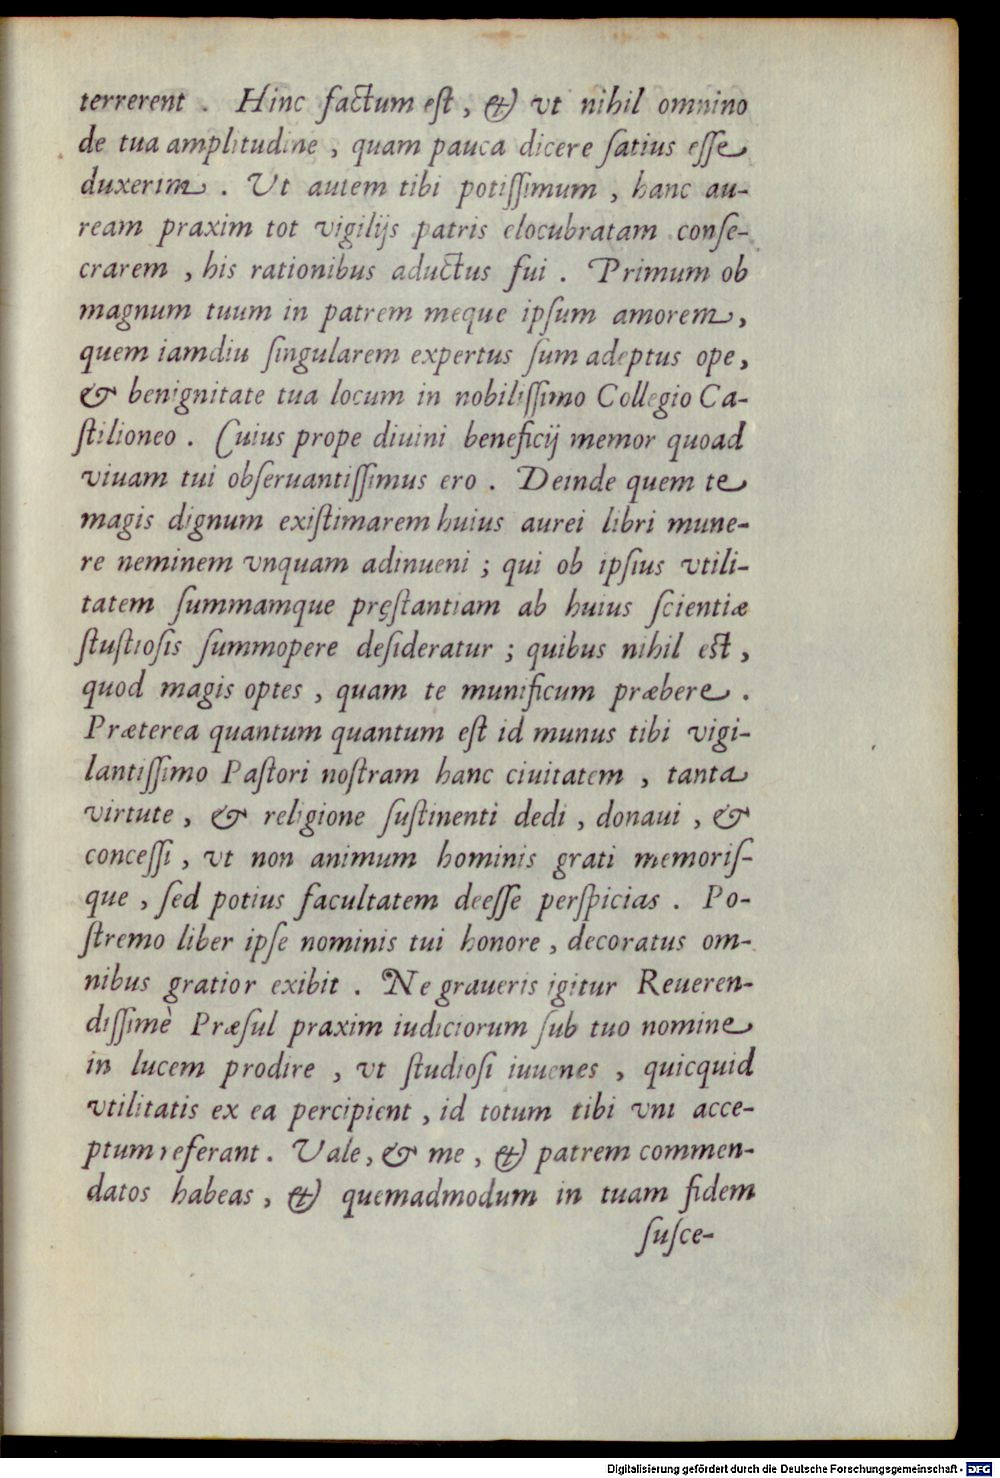 terrerent . Hinc factum eſt , & vt nihil omnino
de tua amplitudine , quam pauca dicere ſatius eſſe
duxerim . Vt autem tibi potiſſimum , hanc au-
ream praxim tot vigilijs patris elocubratam conſe-
crarem , his rationibus aductus fui . Primum ob
magnum tuum in patrem meque ipſum amorem ,
quem iamdiu ſingularem expertus ſum adeptus ope ,
& benignitate tua locum in nobiliſſimo Collegio Ca-
ſtilioneo . Cuius prope diuini beneficij memor quoad
viuam tui obſeruantiſſimus ero . Deinde quem te
magis dignum exiſtimarem huius aurei libri mune-
re neminem vnquam adinueni ; qui ob ipſius vtili-
tatem ſummamque pręſtantiam ab huius ſcientiæ
ſtuſtioſis ſummopere deſideratur ; quibus nihil eſt ,
quod magis optes , quam te munificum præbere .
Præterea quantum quantum eſt id munus tibi vigi-
lantiſſimo Paſtori noſtram hanc ciuitatem , tanta
virtute , & religione ſuſtinenti dedi , donaui , &
conceſſi , vt non animum hominis grati memoriſ-
que , ſed potius facultatem deeſſe perſpicias . Po-
ſtremo liber ipſe nominis tui honore , decoratus om-
nibus gratior exibit . Ne graueris igitur Reueren-
diſſimè Præſul praxim iudiciorum ſub tuo nomine
in lucem prodire , vt ſtudioſi iuuenes , quicquid
vtilitatis ex ea percipient , id totum tibi vni acce-
ptum referant . Vale , & me , & patrem commen-
datos habeas , & quemadmodum in tuam fidem
ſuſce-
Digitalisierung gefördert durch die Deutsche Forschungsgemeinschaft - DFG